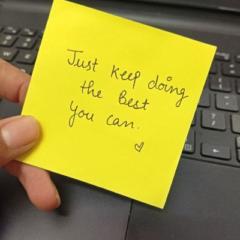 Just keep doing
the Best
you can.